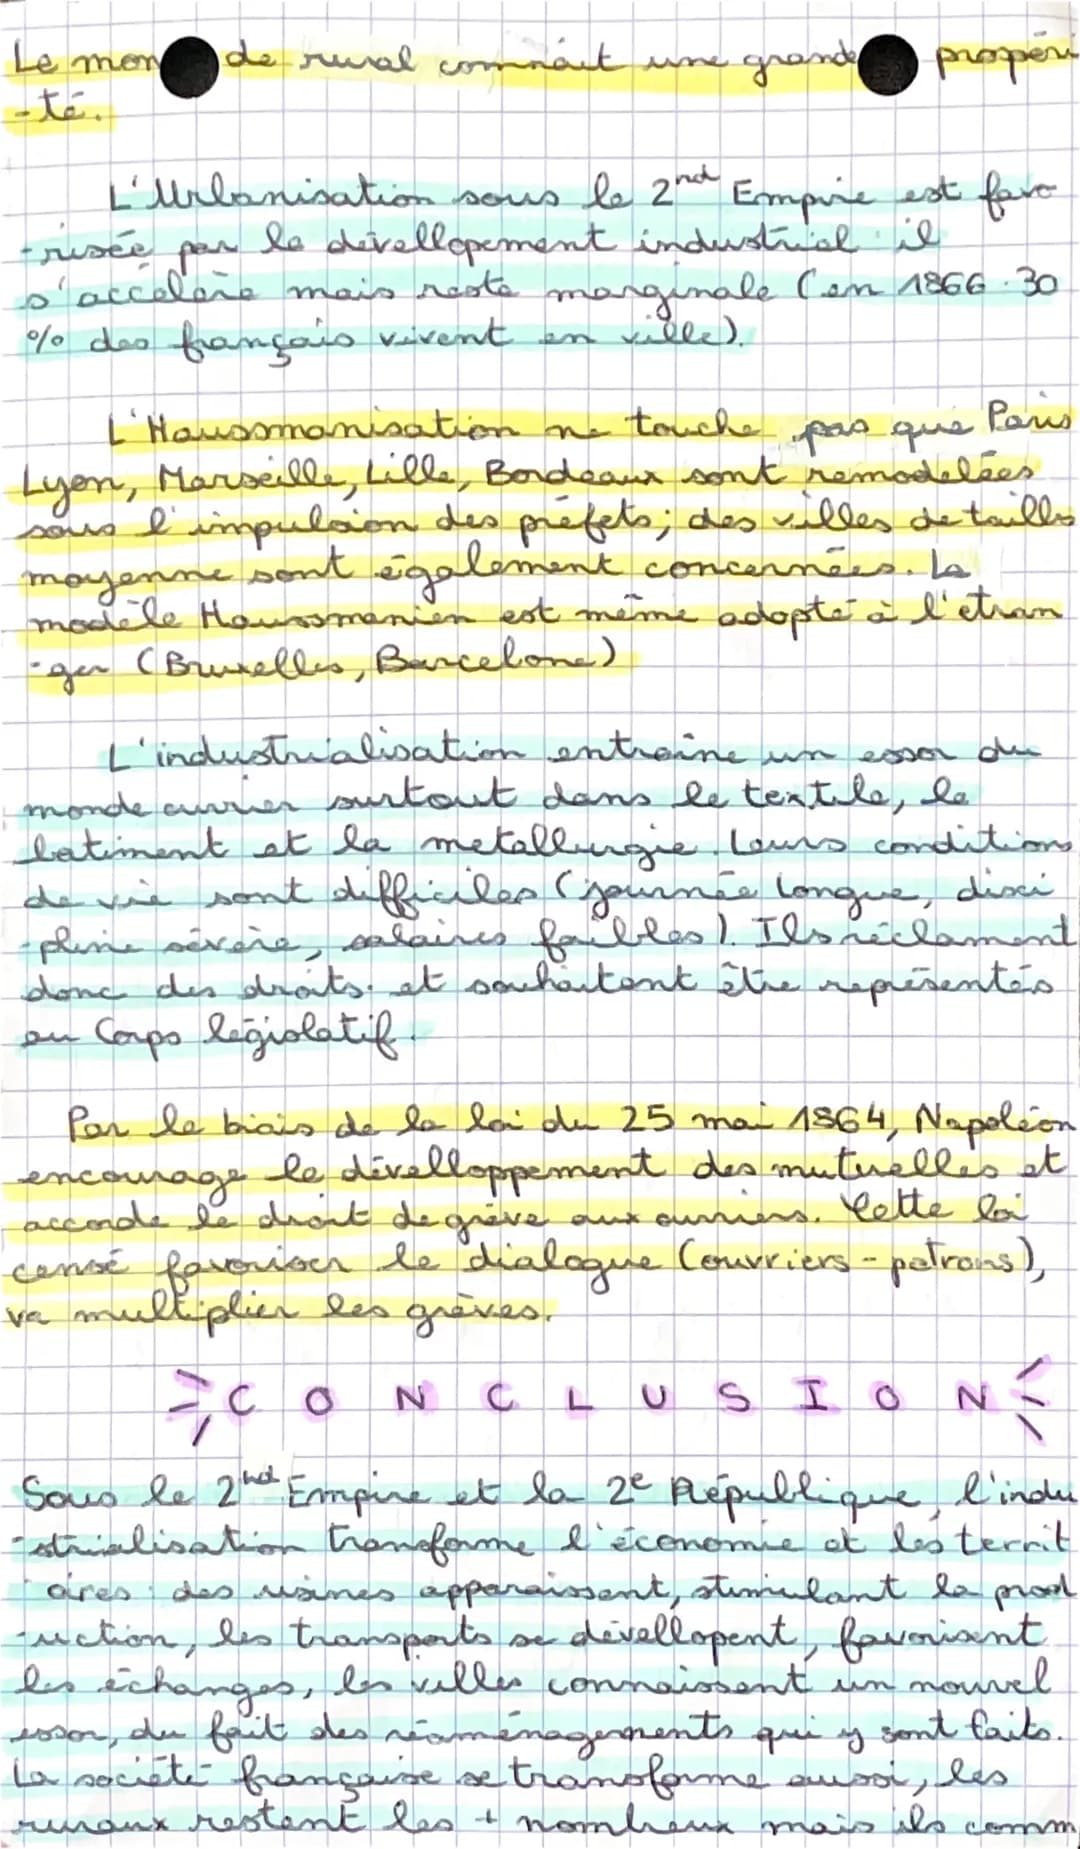 Le monde rural connait une grande propéri
-té.
L'Urbanisation sous le 2nd Empire est favo
-risée par le dévellopement industrial il
s'accélère mais reste marginale (en 1866 30
% des français vivent en ville).
L'Haussmanisation ne touche pas que Paris
Lyon, Marseille, Lille, Bordeaux sont remodelées
sous l'impulsion des préfets; des villes de taille
moyenne sont également concernées. Le
modèle Haussmanien est même adopté à l'etran
-ger (Bruxelles, Barcelone)
L'industrialisation entraîne un essor du
monde ouvrier surtout dans le textile, le
batiment et la metallurgie. Leurs conditions
de vie sont difficiles (journée longue, disci
-pline sévère, salaires faibles). Ils réclament
donc des droits et souhaitent être représentés
au Corps législatif.
Par le biais de la loi du 25 mai 1864, Napoléon
encourage le dévelloppement des mutuelles et
accorde le droit de grève aux ouvriers. Cette loi
censé favoriser le dialogue (ouvriers - patrons),
va multiplier les grèves.
CONCLUSION
Sous le 2nd Empire et la 2e République, l'indu
-strialisation transforme l'économie et les territ
oires : des usines apparaissent, stimulant la prod
-uction, les transports se dévellopent, favorisent
les échanges, les villes connaissent un nouvel
essor, du fait des réaménagements qui y sont faits.
La société française se transforme aussi, les
ruraux restent les + nombreux mais ils comm